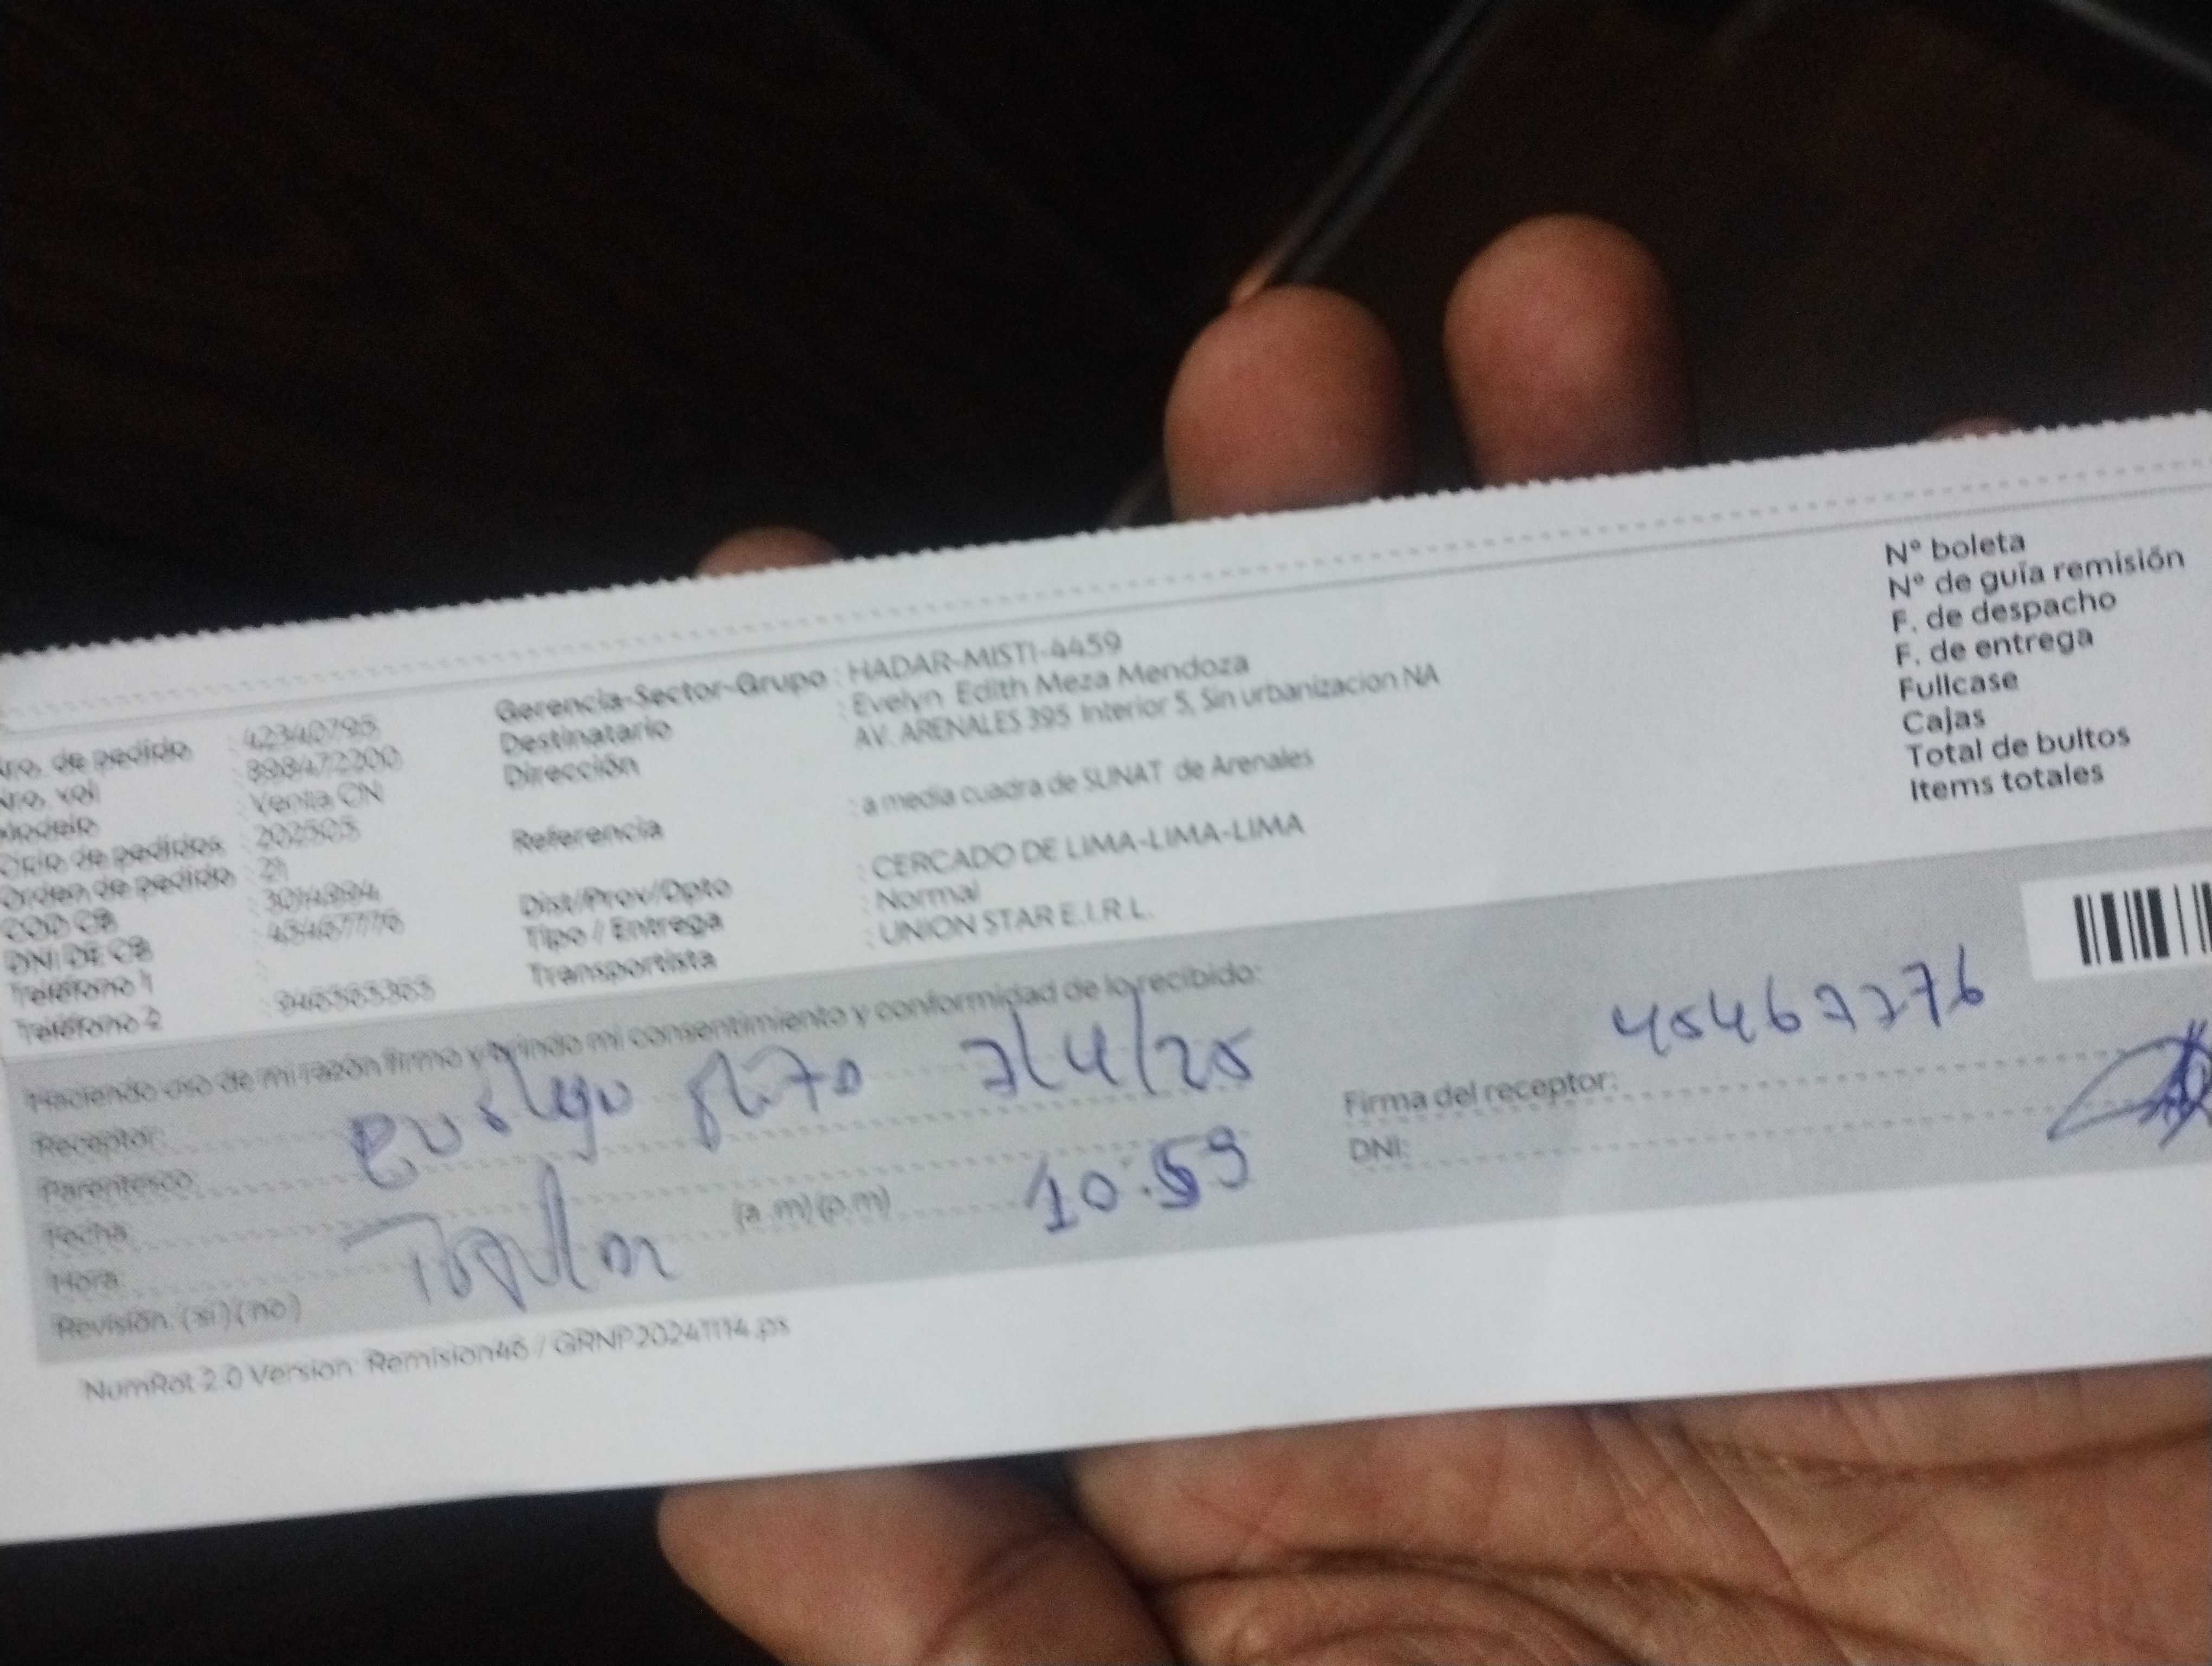 Nro. de pedido : 42340795
Nro. vol : 898472200
Modelo : Venta CN
Ciclo de pedidos : 202505
Orden de pedido : 21
COD CB
DNI DE CB
Teléfono 1 :
Teléfono 2
Gerencia-Sector-Grupo : HADAR-MISTI-4459
Destinatario : Evelyn Edith Meza Mendoza
Dirección : AV. ARENALES 395 Interior 5, Sin urbanizacion NA
Referencia : a media cuadra de SUNAT de Arenales
Dist/Prov/Dpto : CERCADO DE LIMA-LIMA-LIMA
Tipo / Entrega : Normal
Transportista : UNION STAR E.I.R.L.
N° boleta
N° de guía remisión
F. de despacho
F. de entrega
Fullcase
Cajas
Total de bultos
Items totales
Haciendo uso de mi razón firmo y brindo mi consentimiento y conformidad de lo recibido:
Receptor: 7/4/25
Parentesco:
Fecha:
Hora: (a.m) (p.m) 10:59
Revisión: (si) (no)
45467776
Firma del receptor:
DNI:
NumRot 2.0 Version: Remision46 / GRNP20241114.ps